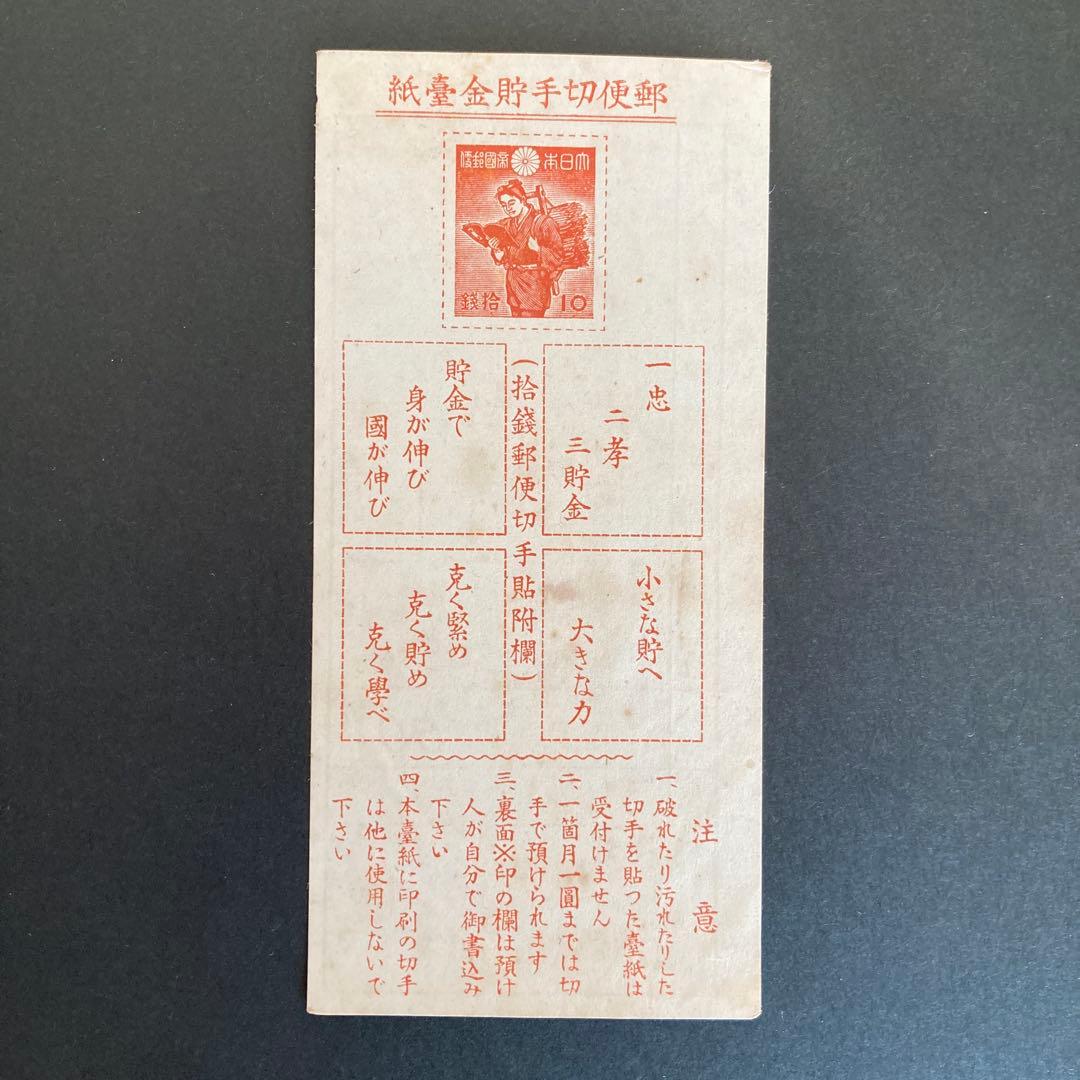 郵便切手貯金臺紙
大日本帝國郵便
拾錢 10
一忠
二孝
三貯金
(拾錢郵便切手貼附欄)
貯金で
身が伸び
國が伸び
小さな貯へ
大きな力
克く緊め
克く貯め
克く學べ
注意
一、破れたり汚れたりした
切手を貼つた臺紙は
受付けません
二、一箇月一圓までは切
手で預けられます
三、裏面※印の欄は預け
人が自分で御書込み
下さい
四、本臺紙に印刷の切手
は他に使用しないで
下さい